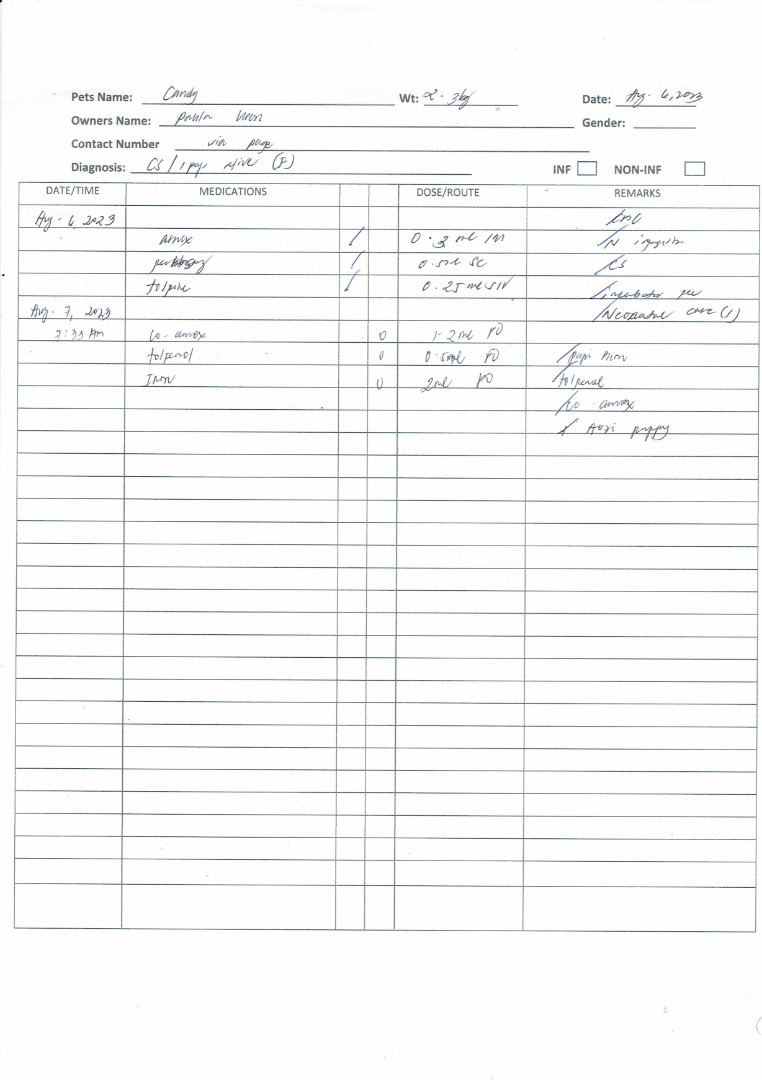 Pets Name: Candy Wt: 2.3kg Date: Aug. 6, 2023
Owners Name: Gender:
Contact Number via page
Diagnosis: CS / 1 pup alive (F) INF NON-INF
DATE/TIME MEDICATIONS DOSE/ROUTE REMARKS
Aug. 6, 2023 / CBC
amox / 0.3 ml IM / IV
/ 0.5ml SC / CS
/ 0.25 ml / incubator
Aug. 7, 2023 / care (1)
7:33 Am Co-amox 0 1.2ml PO
tolfenol 0 0.5ml PO / papi
Iron 0 2ml PO / tolfenol
/ Co-amox
/ Aozi puppy